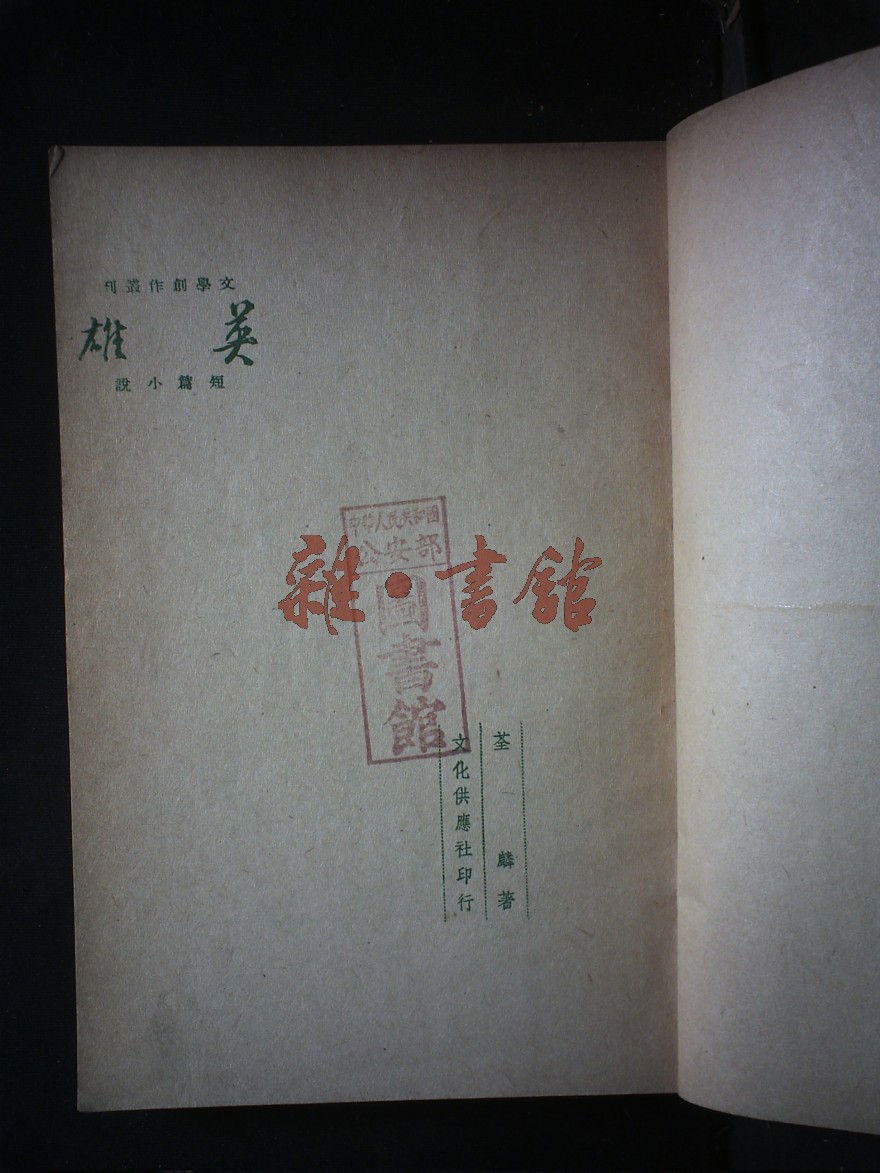 文學創作叢刊
英雄
短篇小說
中華人民共和國
公安部
圖書館
雜·書館
荃麟著
文化供應社印行